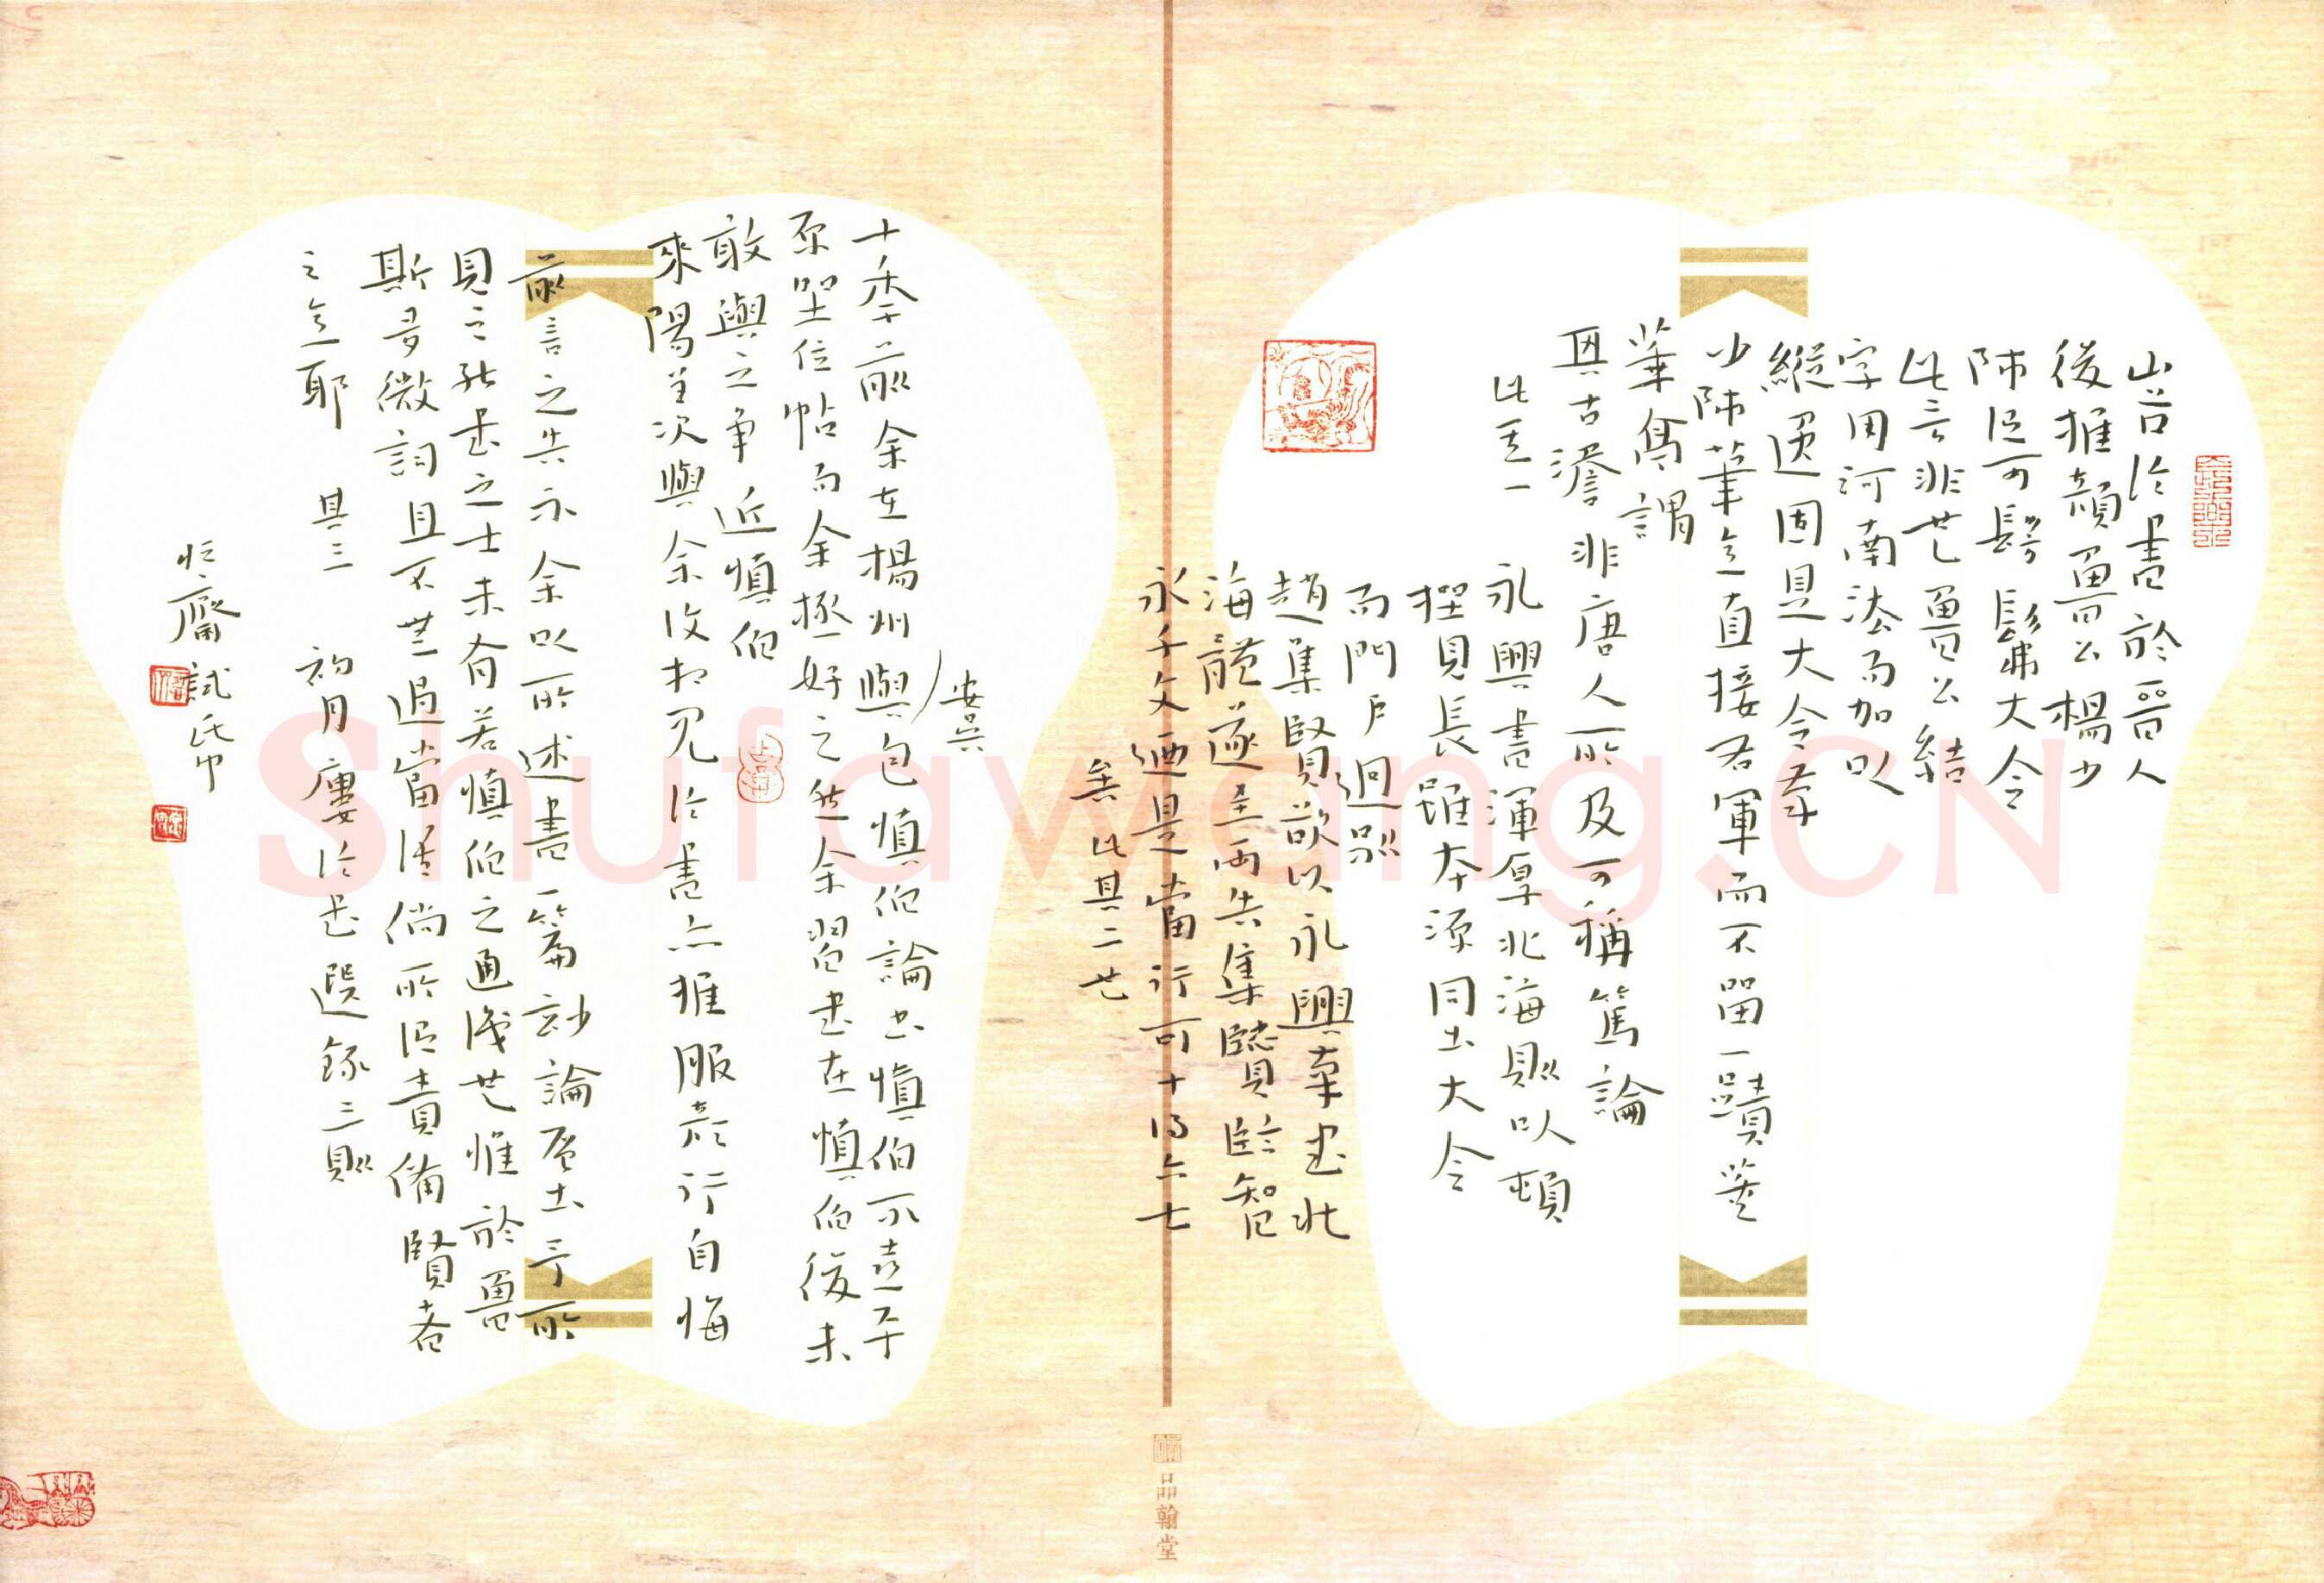 山谷論書於晉人
後推顏魯公楊少
師足可髣髴大令
此言非也魯公結
字用河南法而加以
縱逸固是大令率
少師筆意直接右軍而不留一蹟
筆
其古澹非唐人所及可稱篤論
此其一
永興書渾厚北海則以頓
見長雖本源同出大令
而門戶迥別
趙集賢欲以永興率書北
海體遂至兩失集賢臨智
永千文廼是當行可十得六七
矣 此其二也
安吳
十季前余在楊州與包慎伯論書慎伯不喜平
原坐位帖而余極好之然余習書在慎伯後未
敢與之爭 近慎伯
來陽羡次與余復相見論書亦推服
行自悔
前言之失 示余以所述書一篇
論 出于所
見之 書之士未有若慎伯之通識也惟於魯
斯多微詞且不無過當
倘所 責備賢者
之意耶 其三 初月廔論書選錄三則
忙齋試紙
品翰堂
Shufawang.CN